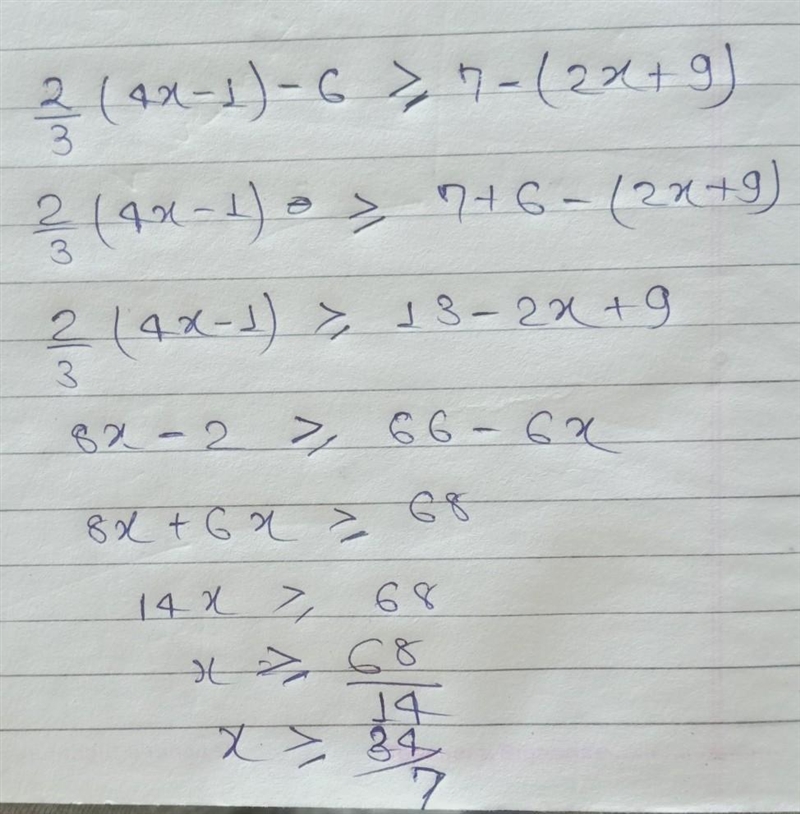 2/3 (4x-1) - 6 ≥ 7 - (2x+9)
2/3 (4x-1) ≥ 7+6 - (2x+9)
2/3 (4x-1) ≥ 13 - 2x + 9
8x - 2 ≥ 66 - 6x
8x + 6x ≥ 68
14x ≥ 68
x ≥ 68/14
x ≥ 34/7